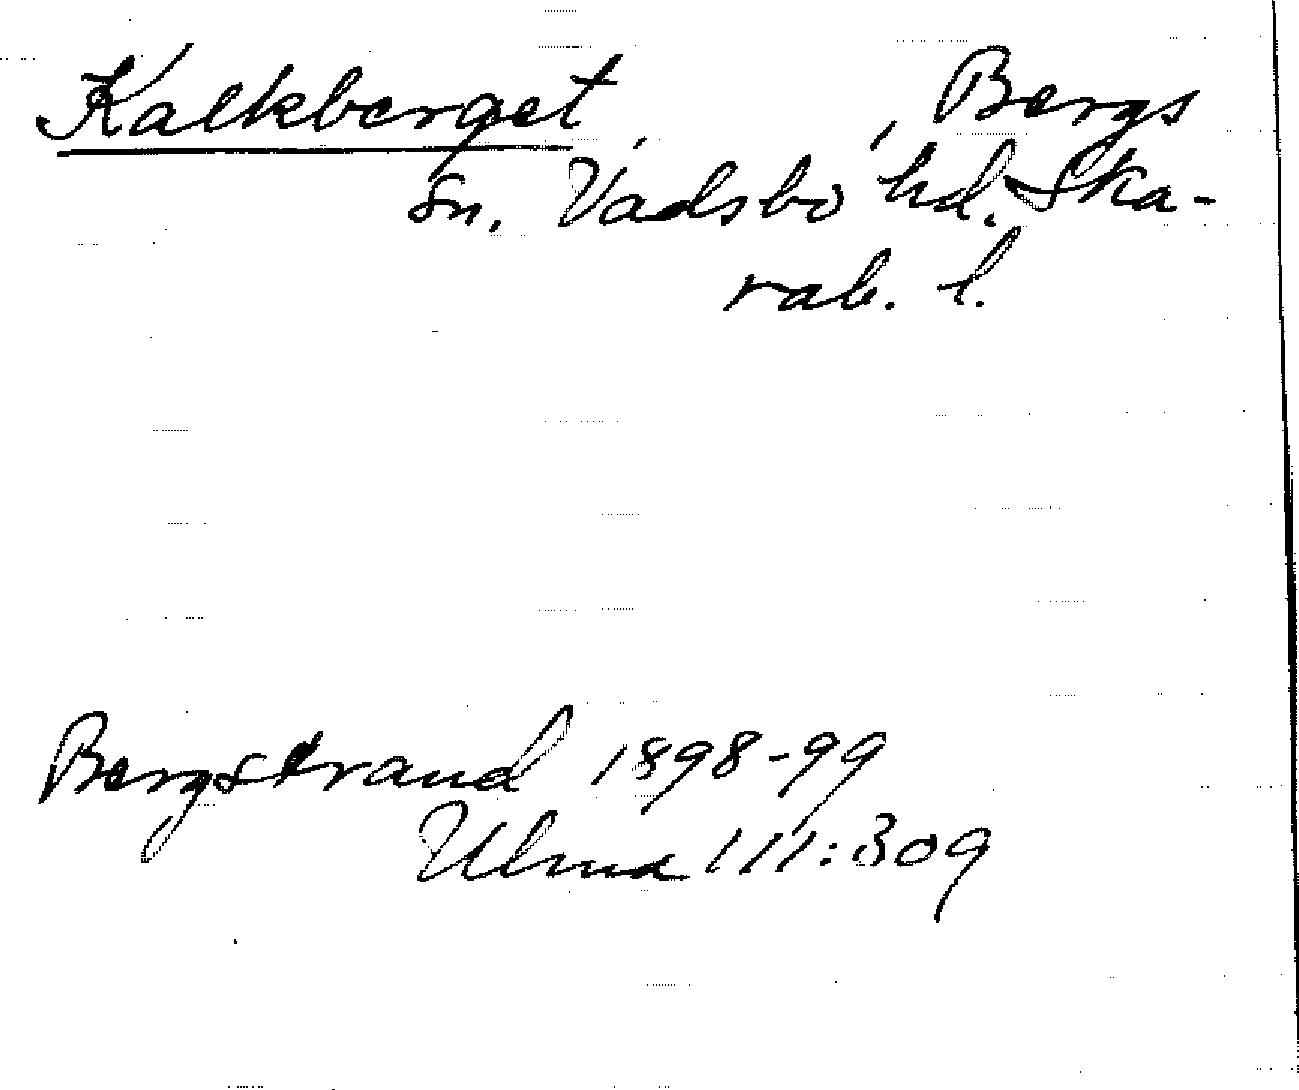 Kalkberget, , Bergs
sn. Vadsbo hd. Ska-
rab. l.
Bergstrand 1898-99
Ulma 111:309